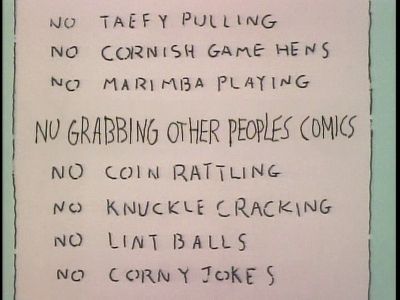 NO TAEFY PULLING
NO CORNISH GAME HENS
NO MARIMBA PLAYING
NU GRABBING OTHER PEOPLES COMICS
NO COIN RATTLING
NO KNUCKLE CRACKING
NO LINT BALLS
NO CORNY JOKES